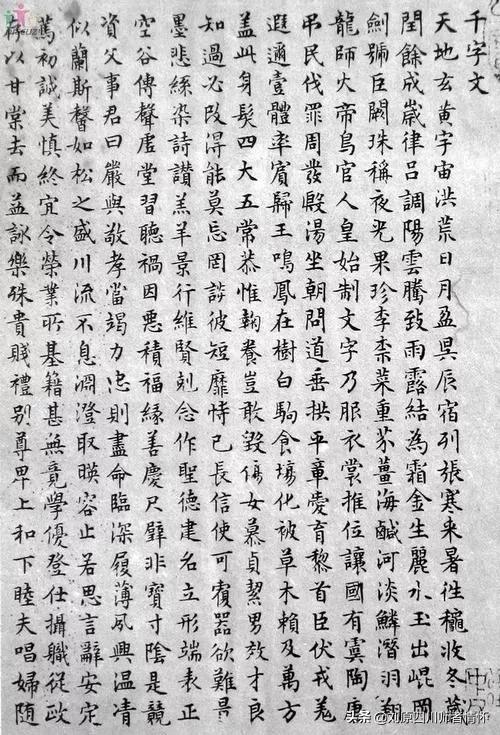 千字文
天地玄黃宇宙洪荒日月盈昃辰宿列張寒来暑徃穐收冬蔵
閏餘成歲律呂調陽雲騰致雨露結為霜金生麗水玉出崐岡
劍號巨闕珠稱夜光果珍李柰菜重芥薑海鹹河淡鱗潛羽翔
龍師火帝鳥官人皇始制文字乃服衣裳推位讓國有虞陶唐
吊民伐罪周發殷湯坐朝問道垂拱平章愛育黎首臣伏戎羌
遐邇壹體率賓歸王鳴鳳在樹白駒食場化被草木賴及萬方
蓋此身髮四大五常恭惟鞠養豈敢毀傷女慕貞潔男效才良
知過必改得能莫忘罔談彼短靡恃己長信使可覆器欲難量
墨悲絲染詩讚羔羊景行維賢剋念作聖德建名立形端表正
空谷傳聲虛堂習聽禍因惡積福緣善慶尺璧非寶寸陰是競
資父事君曰嚴與敬孝當竭力忠則盡命臨深履薄夙興温凊
似蘭斯馨如松之盛川流不息淵澄取暎容止若思言辭安定
篤初誠美慎終宜令榮業所基籍甚無竟學優登仕攝職從政
存以甘棠去而益詠樂殊貴賤禮別尊卑上和下睦夫唱婦隨
头条 @刘原四川师者情怀